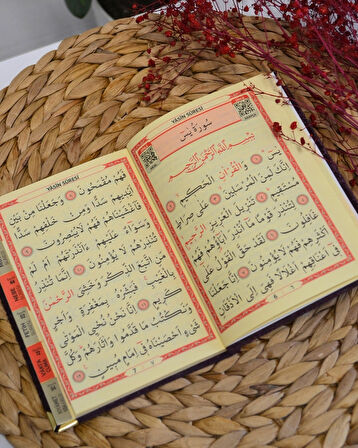 YÂSİN SÛRESİ
سُورَةُ يٰسٓ
بِسْمِ اللّٰهِ الرَّحْمٰنِ الرَّحِيمِ
يٰسٓ ﴿١﴾ وَالْقُرْاٰنِ الْحَكِيمِ ﴿٢﴾
اِنَّكَ لَمِنَ الْمُرْسَلِينَ ﴿٣﴾ عَلٰى صِرَاطٍ
مُسْتَقِيمٍ ﴿٤﴾ تَنْزِيلَ الْعَزِيزِ الرَّحِيمِ ﴿٥﴾
لِتُنْذِرَ قَوْمًا مَٓا اُنْذِرَ اٰبَٓاؤُهُمْ فَهُمْ
غَافِلُونَ ﴿٦﴾ لَقَدْ حَقَّ الْقَوْلُ عَلٰٓى
اَكْثَرِهِمْ فَهُمْ لَا يُؤْمِنُونَ ﴿٧﴾ اِنَّا جَعَلْنَا
فٓي اَعْنَاقِهِمْ اَغْلَالًا فَهِيَ اِلَى الْاَذْقَانِ
6
YÂSİN SÛRESİ
فَهُمْ مُقْمَحُونَ ﴿٨﴾ وَجَعَلْنَا مِنْ بَيْنِ
اَيْدِيهِمْ سَدًّا وَمِنْ خَلْفِهِمْ سَدًّا
فَاَغْشَيْنَاهُمْ فَهُمْ لَا يُبْصِرُونَ ﴿٩﴾
وَسَوَٓاءٌ عَلَيْهِمْ ءَاَنْذَرْتَهُمْ اَمْ لَمْ
تُنْذِرْهُمْ لَا يُؤْمِنُونَ ﴿١٠﴾ اِنَّمَا تُنْذِرُ
مَنِ اتَّبَعَ الذِّكْرَ وَخَشِيَ الرَّحْمٰنَ
بِالْغَيْبِ فَبَشِّرْهُ بِمَغْفِرَةٍ وَاَجْرٍ
كَرِيمٍ ﴿١١﴾ اِنَّا نَحْنُ نُحْيِ الْمَوْتٰى
وَنَكْتُبُ مَا قَدَّمُوا وَاٰثَارَهُمْ وَكُلَّ
شَيْءٍ اَحْصَيْنَاهُ فٓي اِمَامٍ مُبِينٍ ﴿١٢﴾
7